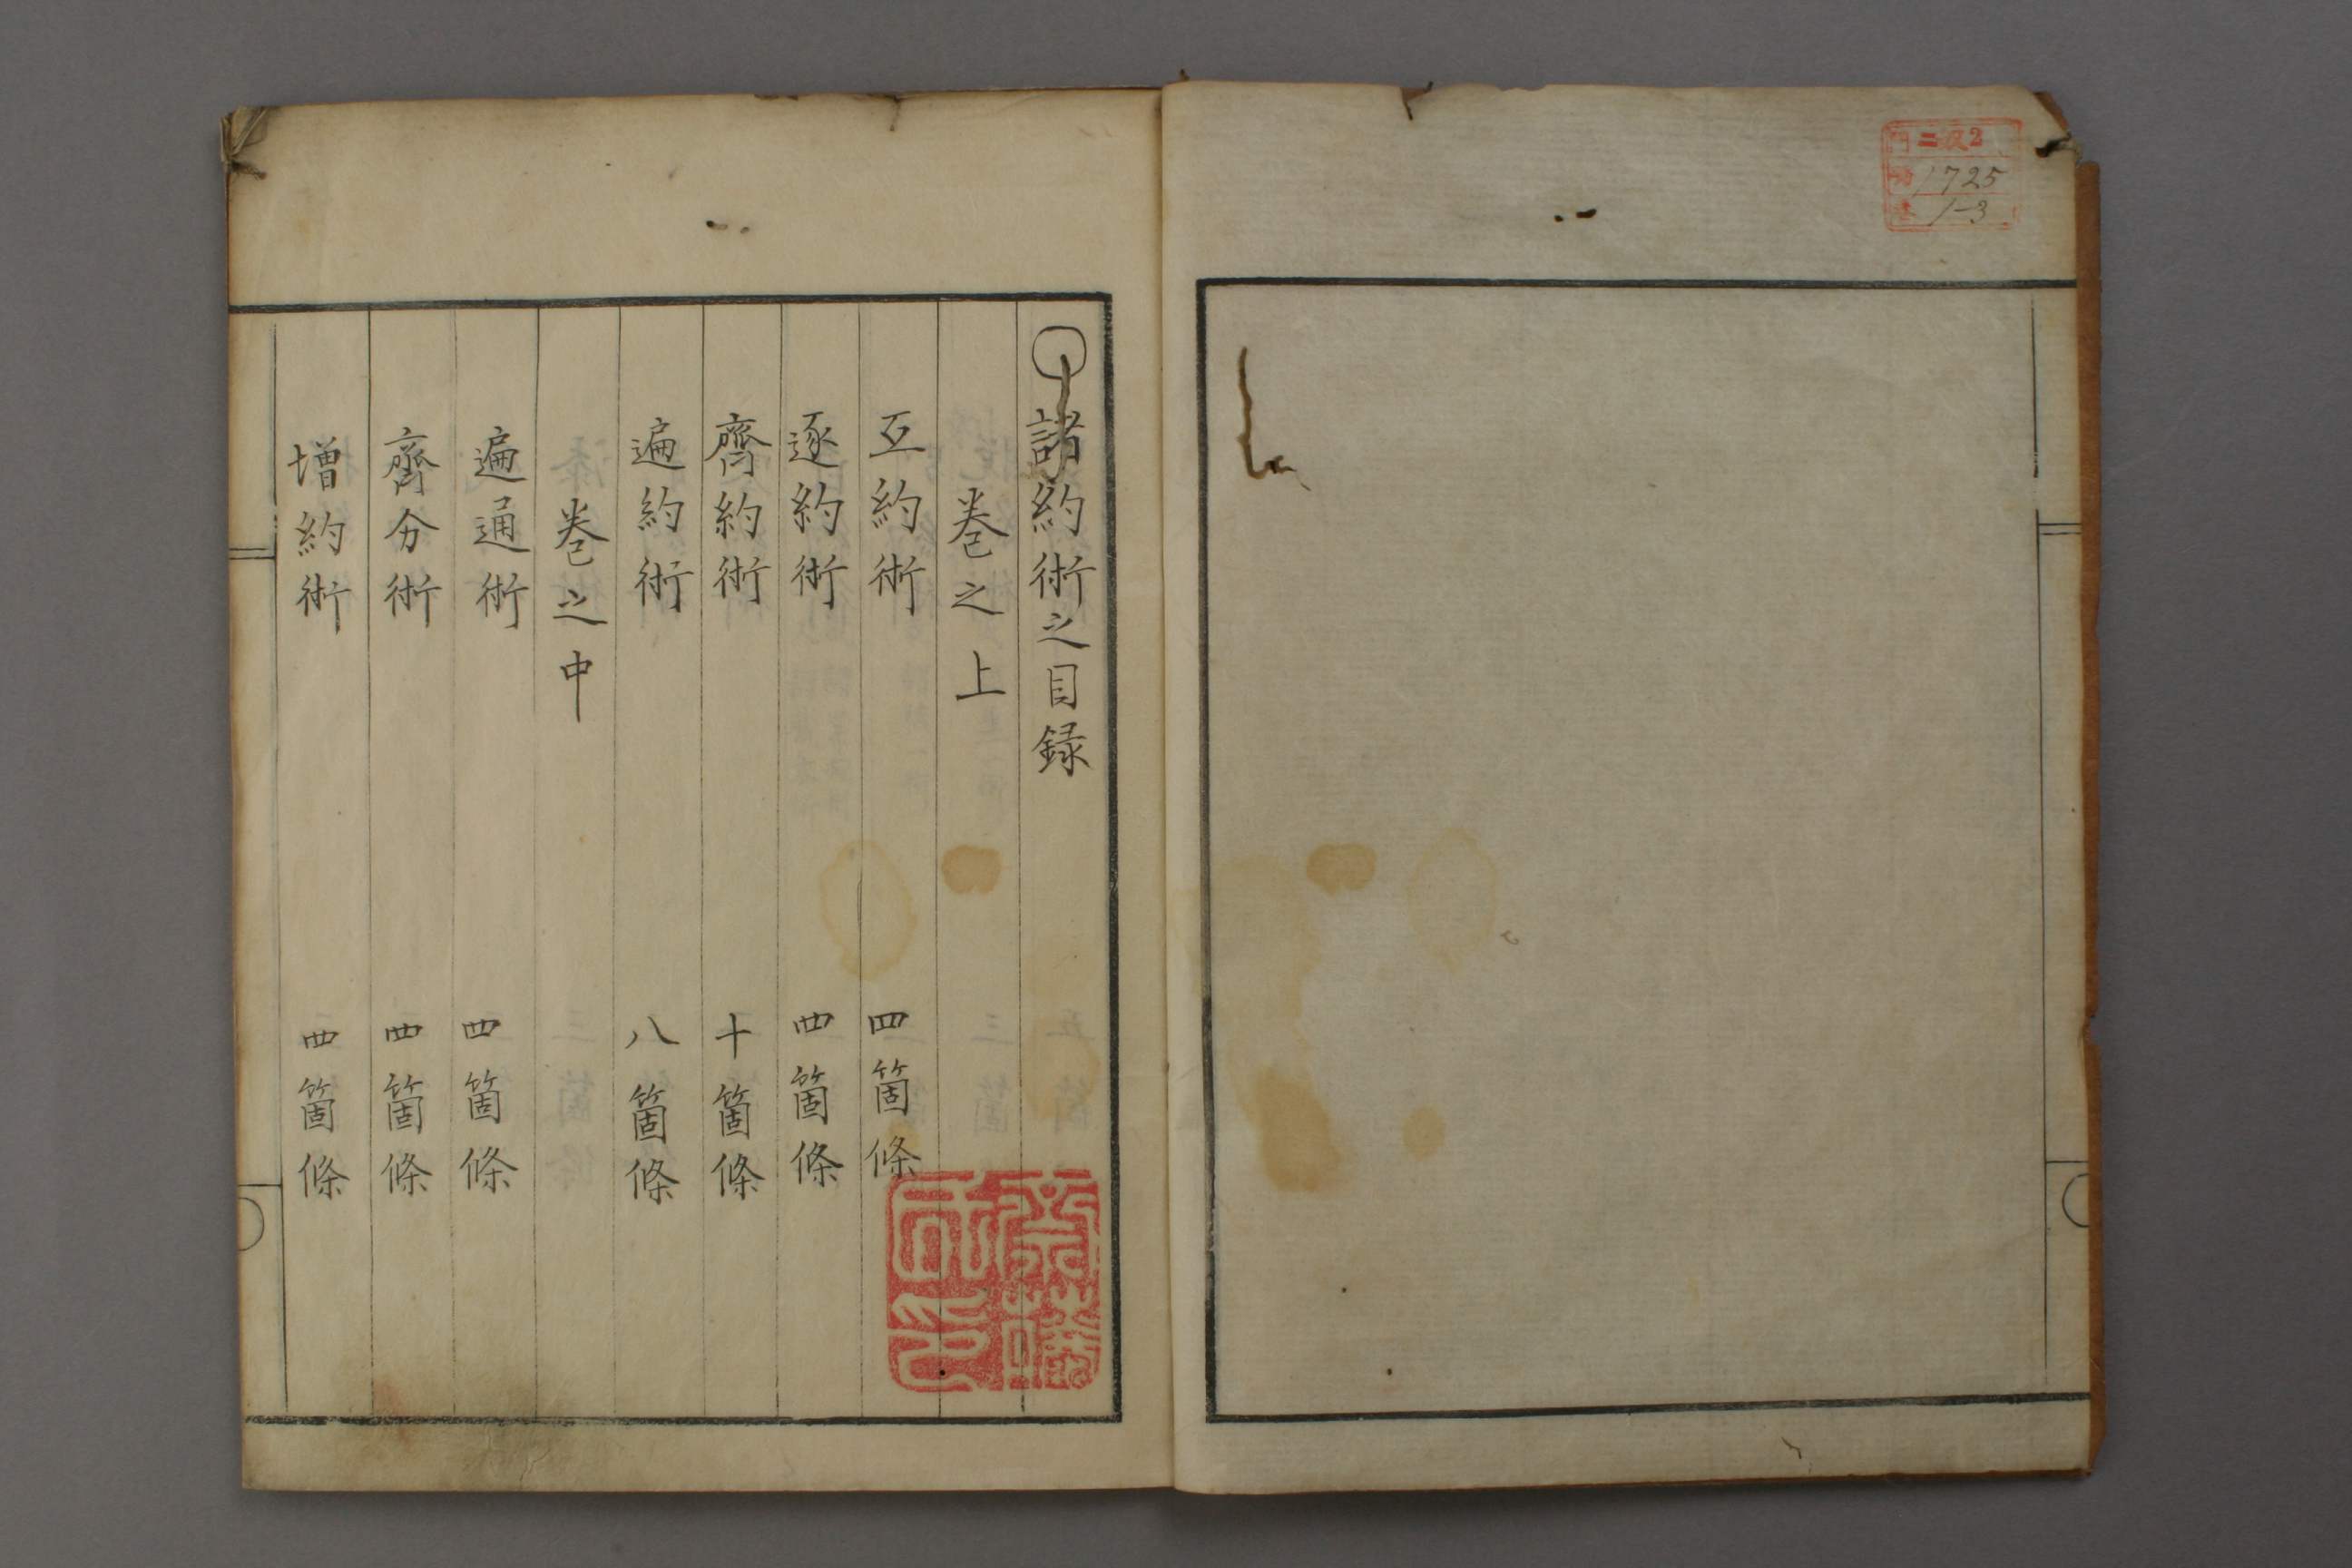 二反2
1725
1-3
諸約術之目録
巻之上
互約術 四箇條
逐約術 四箇條
齊約術 十箇條
遍約術 八箇條
巻之中
遍通術 四箇條
齊分術 四箇條
增約術 四箇條